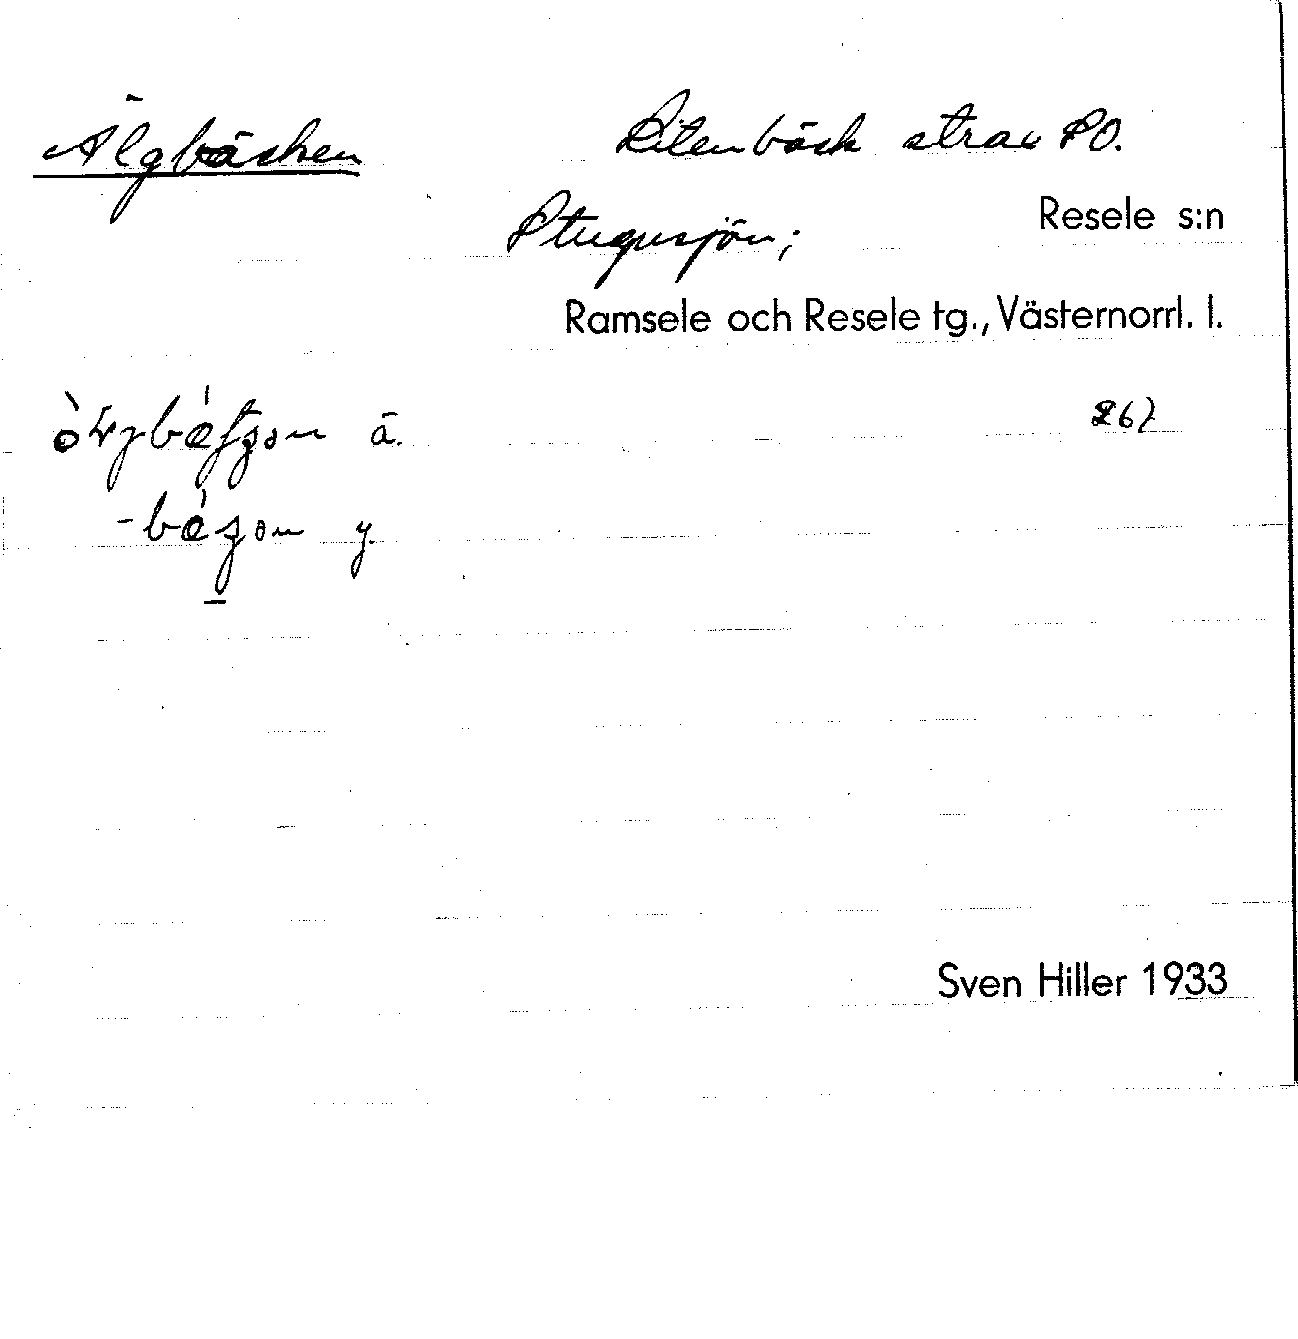 Älgbäcken
Liten bäck strax SO.
Stugusjön;
Resele s:n
Ramsele och Resele tg., Västernorrl. l.
ä.
267
y.
Sven Hiller 1933